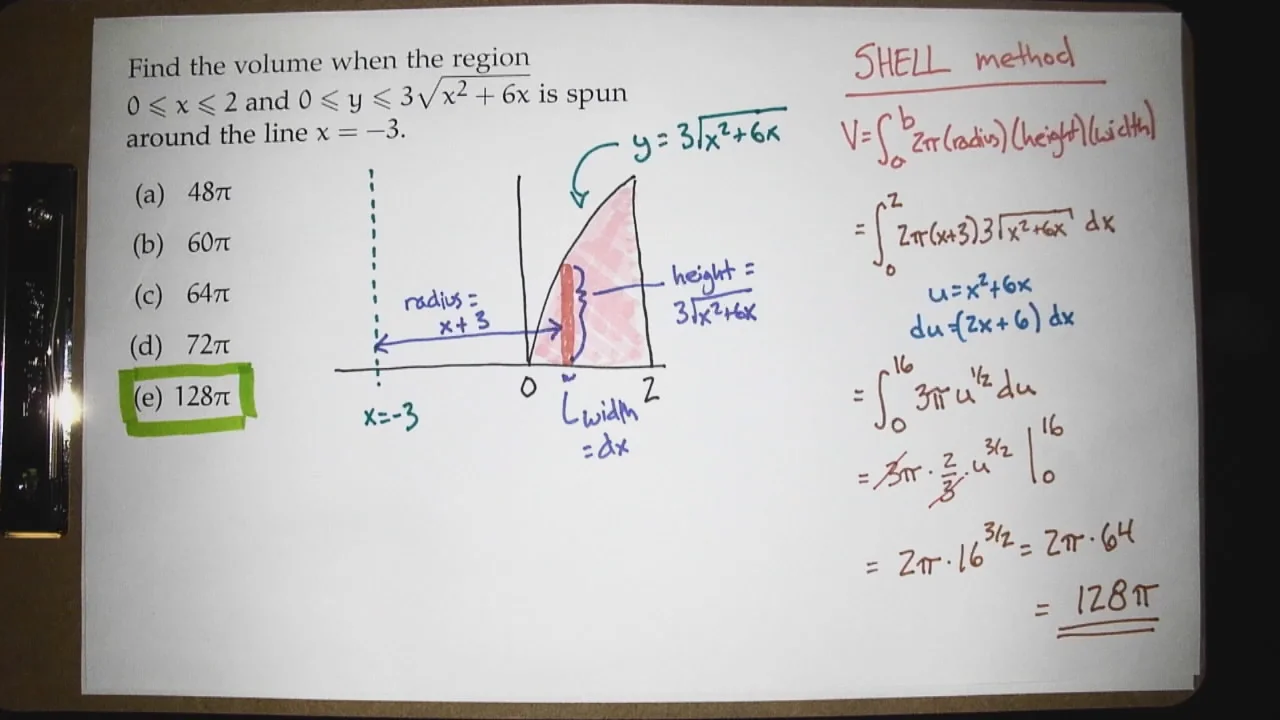 Find the volume when the region
0 ⩽ x ⩽ 2 and 0 ⩽ y ⩽ 3√(x² + 6x) is spun
around the line x = −3.
(a) 48π
(b) 60π
(c) 64π
(d) 72π
(e) 128π
y = 3√(x²+6x)
radius =
x + 3
height =
3√(x²+6x)
0
2
x=-3
width
= dx
SHELL method
V = ∫₀ᵇ 2π(radius)(height)(width)
= ∫₀² 2π(x+3)3√(x²+6x) dx
u = x²+6x
du = (2x+6) dx
= ∫₀¹⁶ 3π u^(1/2) du
= 3π · 2/3 · u^(3/2) |₀¹⁶
= 2π · 16^(3/2) = 2π · 64
= 128π